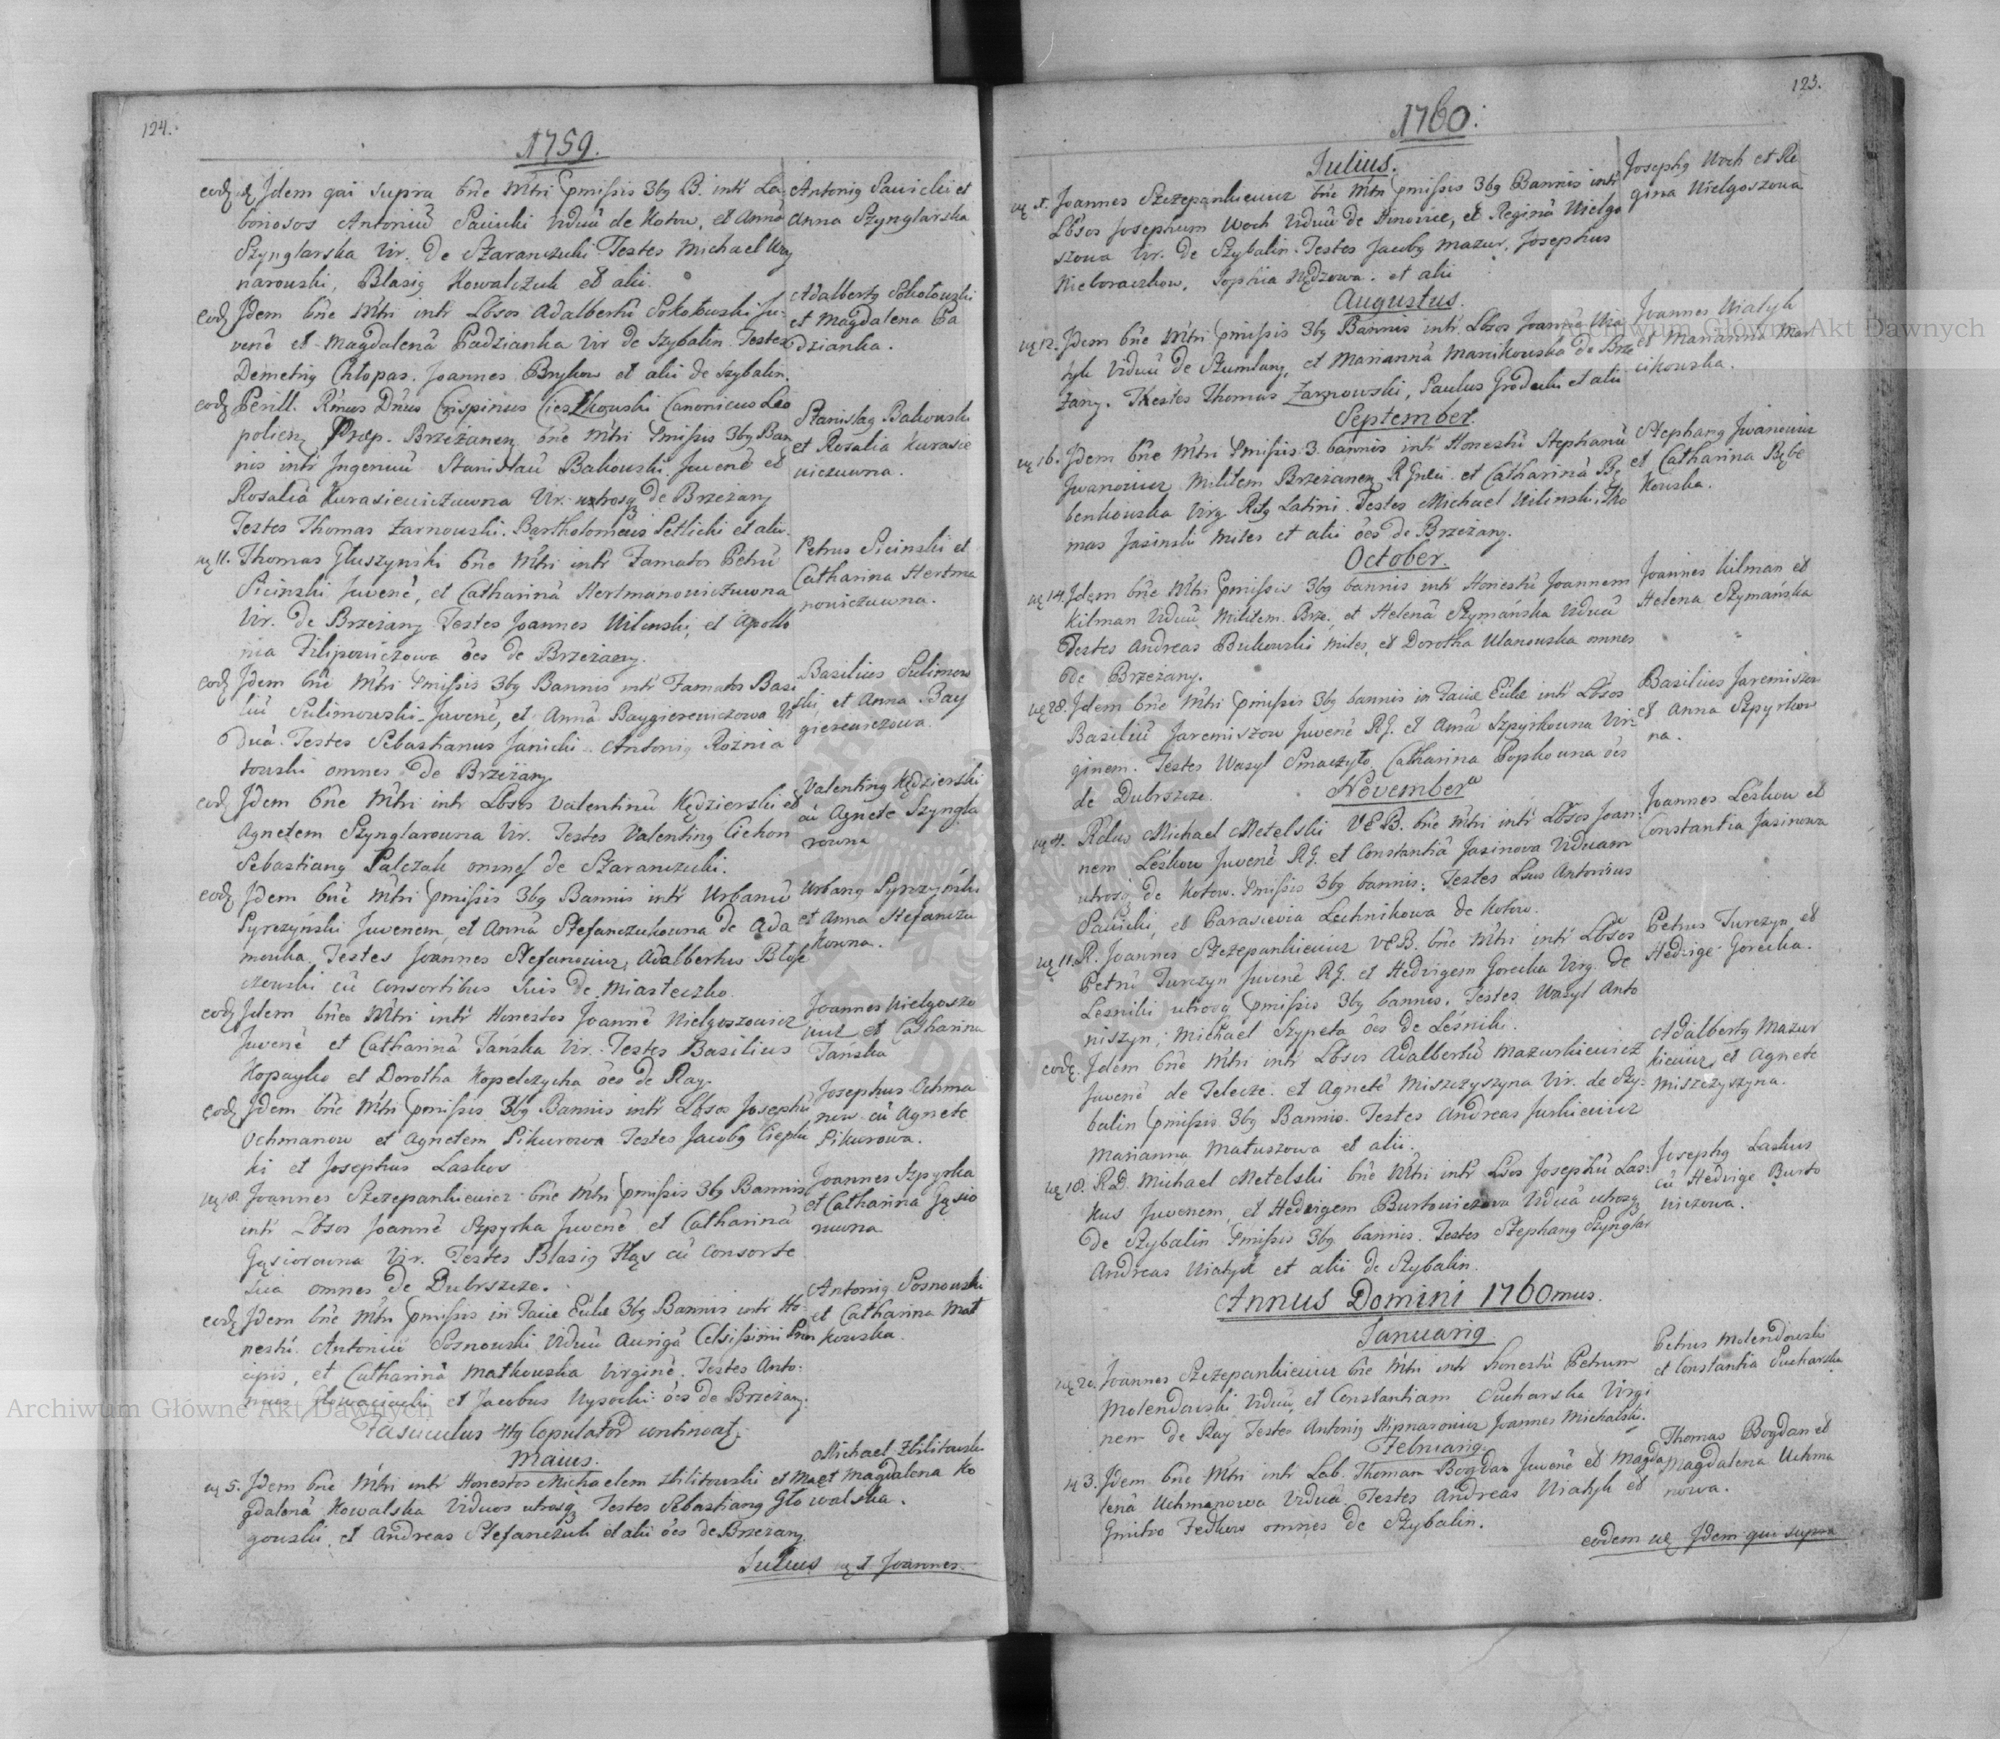 124.
1759.
eodę dę Jdem qui supra bñe Mtri pmissis 3bg B. intr La
boriosos Antoniũ Sawicki Viduũ de Kotow, et Annã
Szynglarska Vir. de Szaranczuki Testes Michael Woy
narowski, Blasig Kowalczuk et alii.
Antonig Sawicki et
Anna Szynglarska
eodę Jdem bñe Mtri intr Lbsos Adalbertũ Sokołowski Ju-
venẽ et Magdalenã Padzianka Vir de Szybalin Testes
Demetrig Chłopas. Joannes Brykow et alii de Szybalin.
Adalbertg Sokołowski
et Magdalena Pa
dzianka.
eodę Perill. Rmus Dnus Crispinus Cieszkowski Canonicus Leo
polien, Præp. Brzeżanen, bñe Mtri pmissis 3bg Ban
nis intr Ingenuũ Stanisłaũ Bakowski Juvenẽ et
Rosaliã Kurasiewiczuwna Vir. utrosq de Brzeżany
Testes Thomas Żarnowski. Bartholomeus Petlicki et alii.
Stanislag Bakowski
et Rosalia Kurasie
wiczuwna.
ię 11. Thomas Głuszynski bñe Mtri intr Famatos Petrũ
Sicinski Juvenẽ, et Catharinã Hertmanowiczuwna
Vir. de Brzeżany Testes Joannes Wilinski, et Apollo
nia Filipowiczowa ões de Brzeżany.
Petrus Sicinski et
Catharina Hertma
nowiczuwna.
eodę Jdem bñe Mtri pmissis 3bg Bannis intr Famatos Basi
liũ Sulimowski Juvenẽ, et Annã Baygierewiczowa Vi
duã. Testes Sebastianus Janicki Antonig Rożnia
towski omnes de Brzeżany.
Basilius Sulimow
ski, et Anna Bay
gierewiczowa.
eodę Jdem bñe Mtri intr Lbsos Valentinũ Kędzierski et
Agnetem Szynglarowna Vir. Testes Valenting Cichon
Sebastiang Palczak omnes de Szaranczuki.
Valenting Kędzierski
cũ Agnete Szyngla
rowna
eodę Jdem bñe Mtri pmissis 3bg Bannis intr Urbanũ
Syrczyński Juvenem, et Annã Stefanczukowna de Ada
mowka. Testes Joannes Stefanowicz, Adalbertus Błasz
czowski cũ Consortibus Suis de Miasteczko.
Urbang Syrczyński
et Anna Stefańczu
kowna.
eodę Jdem bñe Mtri intr Honestos Joannẽ Nielgoszowicz
Juvenẽ et Catharinã Tanska Vir. Testes Basilius
Kopayko et Dorotha Kopelczycha ões de Ray.
Joannes Nielgoszo
wicz et Catharina
Tańska
eodę Jdem bñe Mtri pmissis 3bg Bannis intr Lbsos Josephũ
Ochmanow et Agnetem Sikurowa Testes Jacobg Cieplu
ki et Josephus Laskos
Josephus Ochma
now cũ Agnete
Sikurowa.
ię 18. Joannes Szczepankiewicz bñe Mtri pmissis 3bg Bannis
intr Lbsos Joannẽ Szpyrka Juvenẽ et Catharinã
Gąsiorowna Vir. Testes Blasig Fląs cũ Consorte
sua omnes de Dubrszcze.
Joannes Szpyrka
et Catharina Gąsio
rowna
eodę Jdem bñe Mtri pmissis in facie Eccle 3bg Bannis intr Ho
nestũ Antoniũ Sosnowski Viduũ Aurigã Celsissimi Prin
cipis, et Catharinã Matkowska Virginẽ. Testes Anto-
nius Słowacicki et Jacobus Wysocki ões de Brzeżany.
Antonig Sosnowski
et Catharina Mat
kowska.
Fasciculus 4tg Copulator continuat,
Maius.
ię 5. Jdem bñe Mtri intr Honestos Michaelem Zbilitowski et Ma
gdalenã Kowalska Viduos utrosq Testes Sebastiang Gło
gowski, et Andreas Stefanczuk et alii ões de Brzeżany
Michael Zbilitowski
et Magdalena Ko
walska.
Julius ię 5 Joannes.
125.
1760.
Julius.
ię 5. Joannes Szczepankiewicz bñe Mtri pmissis 3bg Bannis intr
Lbsos Josephum Woch Viduũ de Hinowice, et Reginã Nielgo
szowa Vir. de Szybalin. Testes Jacobg Mazur, Josephus
Nieboraczkow, Sophia Nędzowa. et alii
Josephg Woch et Re
gina Nielgoszowa
Augustus.
ię 12. Jdem bñe Mtri pmissis 3bg Bannis intr Lbsos Joannẽ Wia
tyk Viduũ de Szumlany, et Mariannã Marcikowska de Brze
żany. Testes Thomas Żarnowski, Paulus Grodecki et alii
Joannes Wiatyk
et Marianna Mar
cikowska.
September.
ię 16. Jdem bñe Mtri pmissis 3. bannis intr Honestũ Stephanũ
Jwanowicz Militem Brzeżanen R Græci et Catharinã Bę
benkowska Virg. Ritg Latini. Testes Michael Wilinski, Tho
mas Jasinski Miles et alii ões de Brzeżany.
Stephang Jwanowicz
et Catharina Bębe
kowska.
October.
ię 14. Jdem bñe Mtri pmissis 3bg bannis intr Honestũ Joannem
Kilman Viduũ Militem Brze. et Helenã Szymańska Viduã
Testes Andreas Bukowski Miles, et Dorotha Ulanowska omnes
de Brzeżany.
Joannes Kilman et
Helena Szymańska
ię 28. Jdem bñe Mtri pmissis 3bg bannis in Facie Eccle intr Lbsos
Basiliũ Jaremiszow Juvenẽ RG. et Annã Szpyrkowna Vir-
ginem. Testes Wasyl Smaczyło, Catharina Popkowna ões
de Dubrszcze.
Basilius Jaremiszow
et Anna Szpyrkow
na.
November
ię 4. Rdus Michael Metelski VEB. bñe Mtri intr Lbsos Joan-
nem Leśkow Juvenẽ RG. et Constantiã Jasinowa Viduam
utrosq de Kotow. pmissis 3bg bannis. Testes Lsus Antonius
Sawicki, et Parasievia Lechnikowa de Kotow.
Joannes Leśkow et
Constantia Jasinowa
ię 11. R. Joannes Szczepankiewicz VEB. bñe Mtri intr Lbsos
Petrũ Turczyn Juvenẽ RG. et Hedvigem Gorecka Virg. de
Lesniki utrosq pmissis 3bg bannis. Testes Wasyl Anto
niszyn, Michael Szypeta ões de Leśniki.
Petrus Turczyn et
Hedvige Gorecka.
eodę. Jdem bñe Mtri intr Lbsos Adalbertũ Mazurkiewicz
Juvenẽ de Telecze. et Agnetẽ Miszczyszyna Vir. de Szy-
balin pmissis 3bg Bannis. Testes Andreas Jurkiewicz
Marianna Matuszowa et alii.
Adalbertg Mazur
kiewicz et Agnete
Miszczyszyna.
ię 18. RD. Michael Metelski bñe Mtri intr Lsos Josephũ Las-
kus Juvenem, et Hedvigem Burtowiczowa Viduã utrosq
de Szybalin pmissis 3bg bannis. Testes Stephang Szynglar
Andreas Wiatyk et alii de Szybalin.
Josephg Laskus
cũ Hedvige Burto
wiczowa.
Annus Domini 1760mus.
Januarig
ię 20. Joannes Szczepankiewicz bñe Mtri intr Honestũ Petrum
Molendowski Viduũ, et Constantiam Sucharska Virgi
nem de Ray Testes Antonig Hipnarowicz Joannes Michalski.
Petrus Molendowski
et Constantia Sucharska
Februarig
ię 3. Jdem bñe Mtri intr Lab. Thomam Bogdan Juvenẽ et Magda
lenã Uchmanowa Viduã Testes Andreas Wiatyk et
Gmitro Fedkow omnes de Szybalin.
Thomas Bogdan et
Magdalena Uchma
nowa.
eodem ię Jdem qui supra
Archiwum Główne Akt Dawnych
Archiwum Główne Akt Dawnych